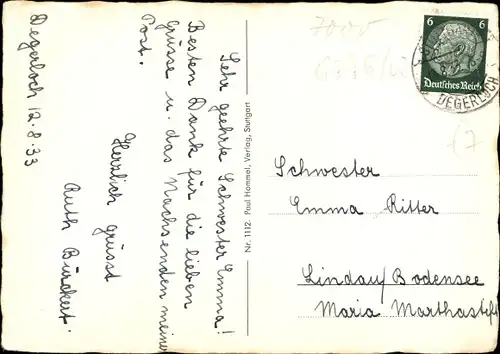 Sehr geehrte Schwester Emma!
Besten Dank für die lieben
Grüsse u. das Nachsenden meiner
Post.
Herzlich grüsst
Ruth Burkert.
Degerloch 12.8.33
Nr. 1112. Paul Hommel, Verlag, Stuttgart
6 6
Deutsches Reich
DEGERLOCH
Schwester
Emma Ritter
Lindau/Bodensee
Maria Marthastift